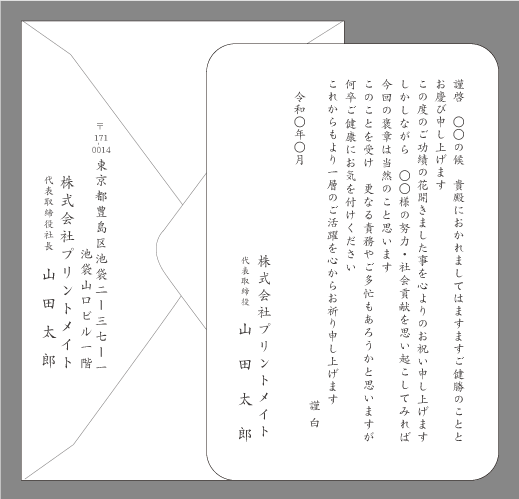 謹啓　〇〇の候　貴殿におかれましてはますますご健勝のことと
お慶び申し上げます
この度のご功績の花開きました事を心よりのお祝い申し上げます
しかしながら　〇〇様の努力・社会貢献を思い起こしてみれば
今回の褒章は当然のこと思います
このことを受け　更なる責務やご多忙もあろうかと思いますが
何卒ご健康にお気を付けください
これからもより一層のご活躍を心からお祈り申し上げます
謹白
令和〇年〇月
株式会社プリントメイト
代表取締役　山田太郎
〒171
0014
東京都豊島区池袋二ー三七ー一
池袋山口ビル一階
株式会社プリントメイト
代表取締役社長　山田太郎